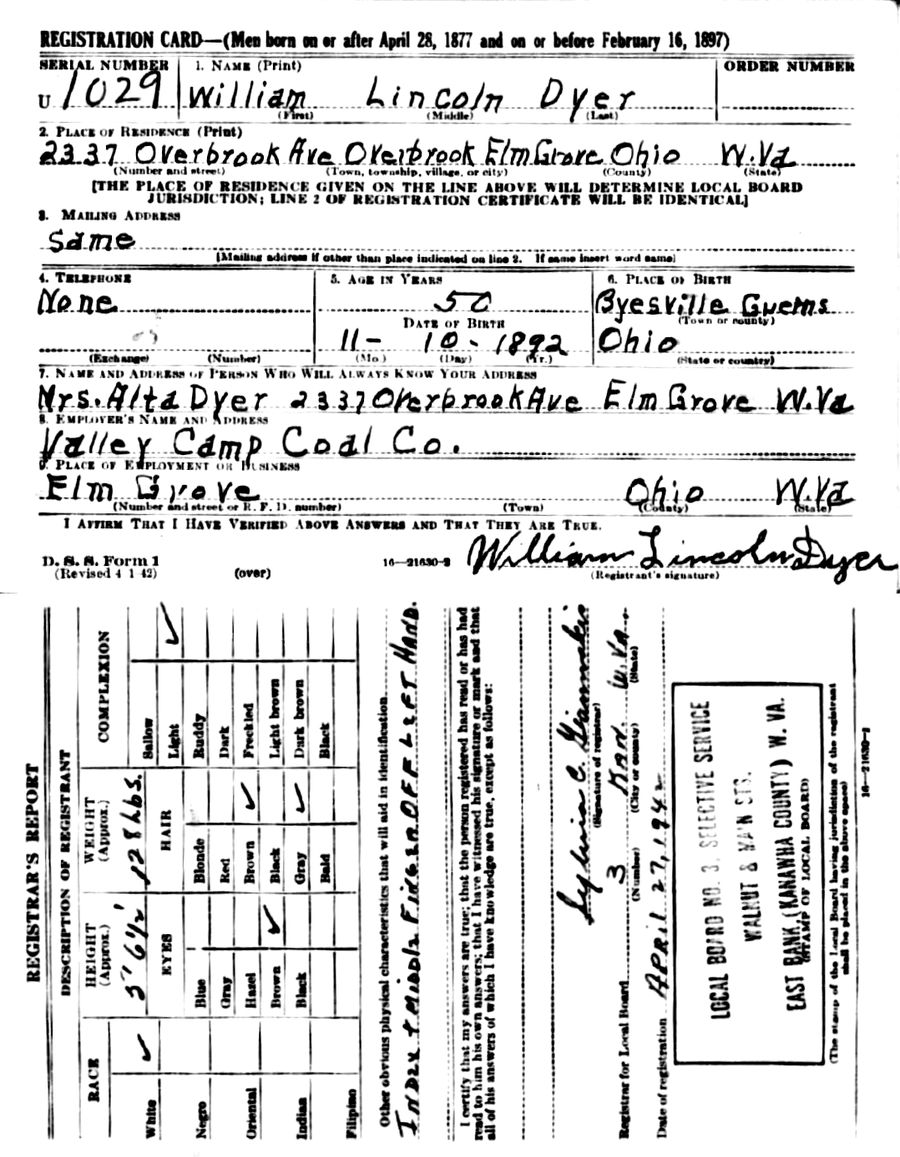 REGISTRATION CARD—(Men born on or after April 28, 1877 and on or before February 16, 1897)
SERIAL NUMBER 1. NAME (Print) ORDER NUMBER
U 1029 William Lincoln Dyer
(First) (Middle) (Last)
2. PLACE OF RESIDENCE (Print)
2337 Overbrook Ave Overbrook Elm Grove Ohio W.Va
(Number and street) (Town, township, village, or city) (County) (State)
[THE PLACE OF RESIDENCE GIVEN ON THE LINE ABOVE WILL DETERMINE LOCAL BOARD
JURISDICTION; LINE 2 OF REGISTRATION CERTIFICATE WILL BE IDENTICAL]
3. MAILING ADDRESS
Same
[Mailing address if other than place indicated on line 2. If same insert word same]
4. TELEPHONE 5. AGE IN YEARS 6. PLACE OF BIRTH
None 50 Byesville Guerns
DATE OF BIRTH (Town or county)
11- 10- 1892 Ohio
(Exchange) (Number) (Mo.) (Day) (Yr.) (State or country)
7. NAME AND ADDRESS OF PERSON WHO WILL ALWAYS KNOW YOUR ADDRESS
Mrs. Alta Dyer 2337 Overbrook Ave Elm Grove W.Va
8. EMPLOYER'S NAME AND ADDRESS
Valley Camp Coal Co.
9. PLACE OF EMPLOYMENT OR BUSINESS
Elm Grove Ohio W.Va
(Number and street or R. F. D. number) (Town) (County) (State)
I AFFIRM THAT I HAVE VERIFIED ABOVE ANSWERS AND THAT THEY ARE TRUE.
D. S. S. Form 1 16—21630-2 William Lincoln Dyer
(Revised 4 1 42) (over) (Registrant's signature)
REGISTRAR'S REPORT
DESCRIPTION OF REGISTRANT
RACE HEIGHT (Approx.) WEIGHT (Approx.) COMPLEXION
5' 6 1/2' 128 lbs.
White ✓ Sallow
EYES HAIR Light ✓
Negro Blue Blonde Ruddy
Gray Red Dark
Oriental Hazel Brown ✓ Freckled
Brown ✓ Black Light brown
Indian Black Gray ✓ Dark brown
Bald Black
Filipino
Other obvious physical characteristics that will aid in identification
INDEX + MIDDLE FINGER OFF LEFT HAND.
I certify that my answers are true; that the person registered has read or has had
read to him his own answers; that I have witnessed his signature or mark and that
all of his answers of which I have knowledge are true, except as follows:
Sylvia C.
(Signature of registrar)
Registrar for Local Board 3 KAN. W.Va.
(Number) (City or county) (State)
Date of registration APRIL 27, 1942
LOCAL BOARD NO. 3, SELECTIVE SERVICE
WALNUT & MAIN STS.
EAST BANK, (KANAWHA COUNTY) W. VA.
(STAMP OF LOCAL BOARD)
(The stamp of the Local Board having jurisdiction of the registrant
shall be placed in the above space)
16—21630-2